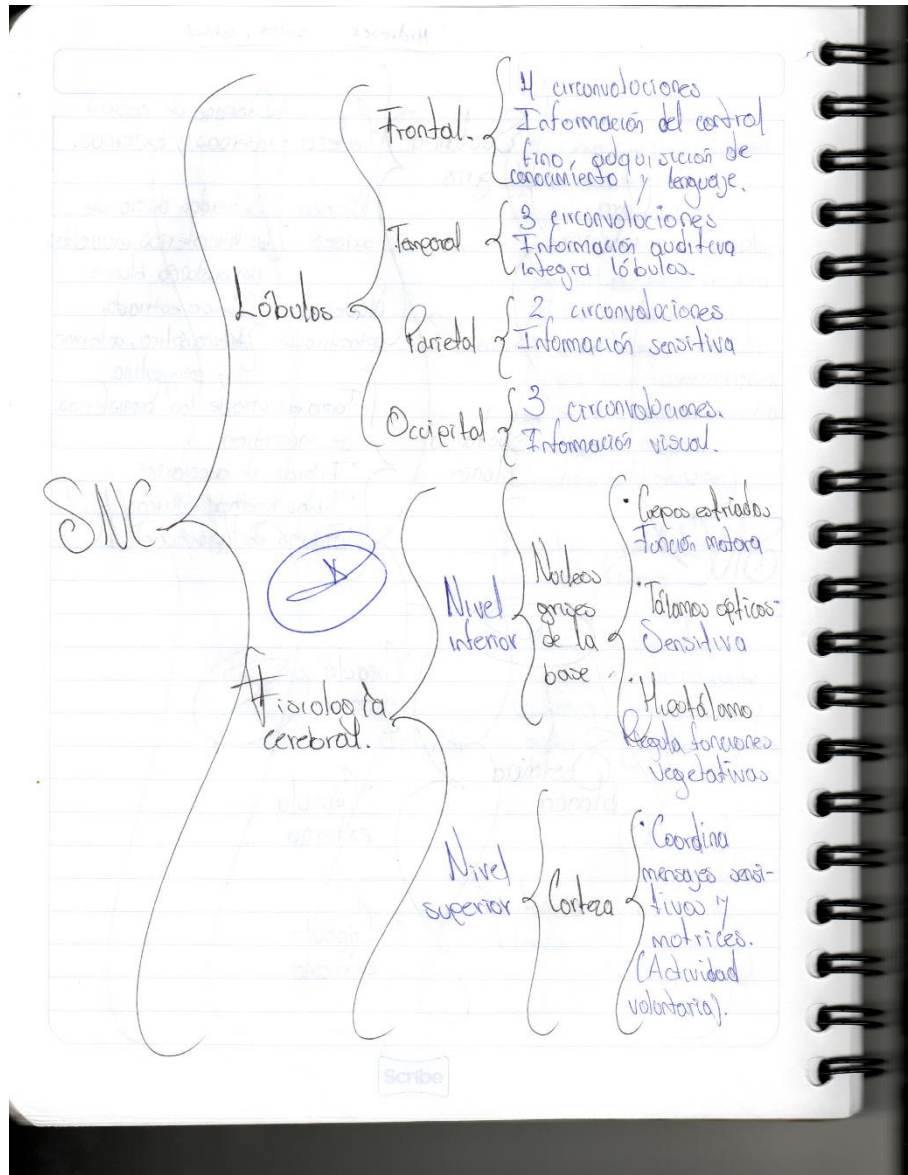 SNC
Lóbulos
Frontal.
4 circonvoluciones
Información del control
fino, adquisición de
conocimiento y lenguaje.
Temporal
3 circonvoluciones
Información auditiva
integra lóbulos.
Parietal
2 circonvoluciones
Información sensitiva
Occipital
3 circonvoluciones.
Información visual.
Fisiología
cerebral.
Nivel
inferior
Núcleos
grises
de la
base
· Cuerpos estriados
Función motora
· Tálamos ópticos-
Sensitiva
· Hipotálamo
Regula funciones
vegetativas
Nivel
superior
Corteza
· Coordina
mensajes sensi-
tivos y
motrices.
(Actividad
voluntaria).
Scribe